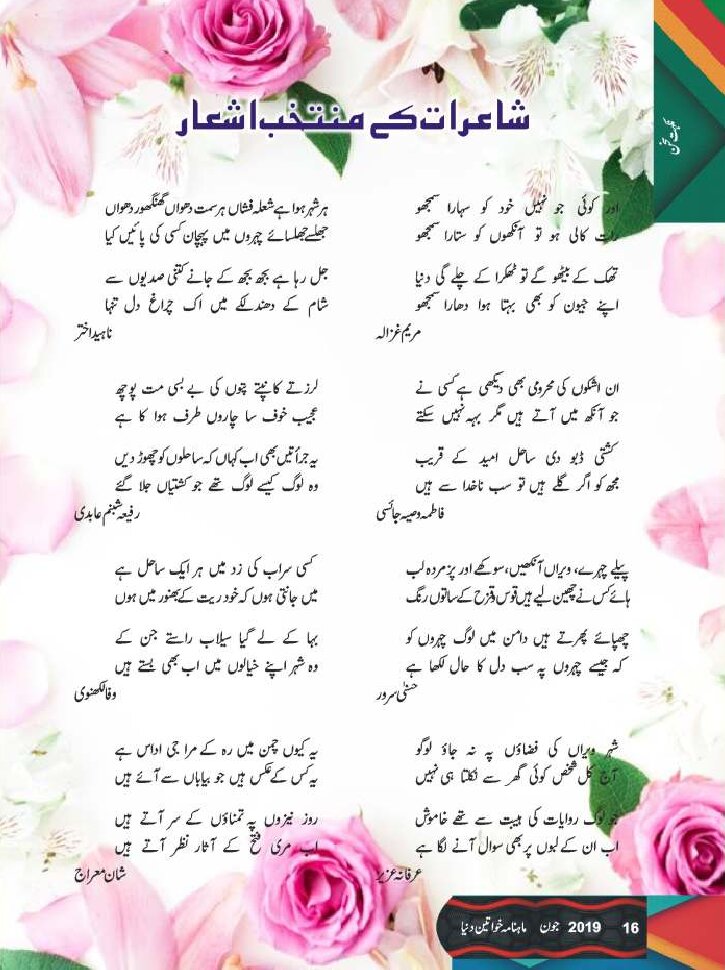 شاعرات کے منتخب اشعار
اور کوئی جو نہیں خود کو سہارا سمجھو
رات کالی ہو تو آنکھوں کو ستارا سمجھو
تھک کے بیٹھو گے تو ٹھکرا کے چلے گی دنیا
اپنے جیون کو بھی بہتا ہوا دھارا سمجھو
مریم غزالہ
ان اشکوں کی محرومی بھی دیکھی ہے کسی نے
جو آنکھ میں آتے ہیں مگر بہہ نہیں سکتے
کشتی ڈبو دی ساحل امید کے قریب
مجھ کو اگر گلے ہیں تو سب ناخدا سے ہیں
فاطمہ وصیہ جائسی
پیلے چہرے، ویراں آنکھیں، سوکھے اور پژمردہ لب
ہائے کس نے چھین لیے ہیں قوس و قزح کے ساتوں رنگ
چھپائے پھرتے ہیں دامن میں لوگ چہروں کو
کہ جیسے چہروں پہ سب دل کا حال لکھا ہے
حسنیٰ سرور
شہر ویراں کی فضاؤں پہ نہ جاؤ لوگو
آج کل شخص کوئی گھر سے نکلتا ہی نہیں
جو لوگ روایات کی ہیبت سے تھے خاموش
اب ان کے لبوں پر بھی سوال آنے لگا ہے
عرفانہ عزیز
ہر شہر ہوا ہے شعلہ فشاں ہر سمت دھواں گھنگھور دھواں
جھلسے جھلسائے چہروں میں پہچان کسی کی پائیں کیا
جل رہا ہے بجھ بجھ کے جانے کتنی صدیوں سے
شام کے دھندلکے میں اک چراغ دل تنہا
ناہید اختر
لرزتے کانپتے پتوں کی بے بسی مت پوچھ
عجیب خوف سا چاروں طرف ہوا کا ہے
یہ جرأتیں بھی اب کہاں کہ ساحلوں کو چھوڑ دیں
وہ لوگ کیسے لوگ تھے جو کشتیاں جلا گئے
رفیعہ شبنم عابدی
کسی سراب کی زد میں ہر ایک ساحل ہے
میں جانتی ہوں کہ خود ریت کے بھنور میں ہوں
بہا کے لے گیا سیلاب راستے جن کے
وہ شہر اپنے خیالوں میں اب بھی بستے ہیں
وفا لکھنوی
یہ کیوں چمن میں رہ کے مرا جی اداس ہے
یہ کس کے عکس ہیں جو بیاباں سے آئے ہیں
روز نیزوں پہ تمناؤں کے سر آتے ہیں
اب مری فتح کے آثار نظر آتے ہیں
شان معراج
ماہنامہ خواتین دنیا جون 2019 16